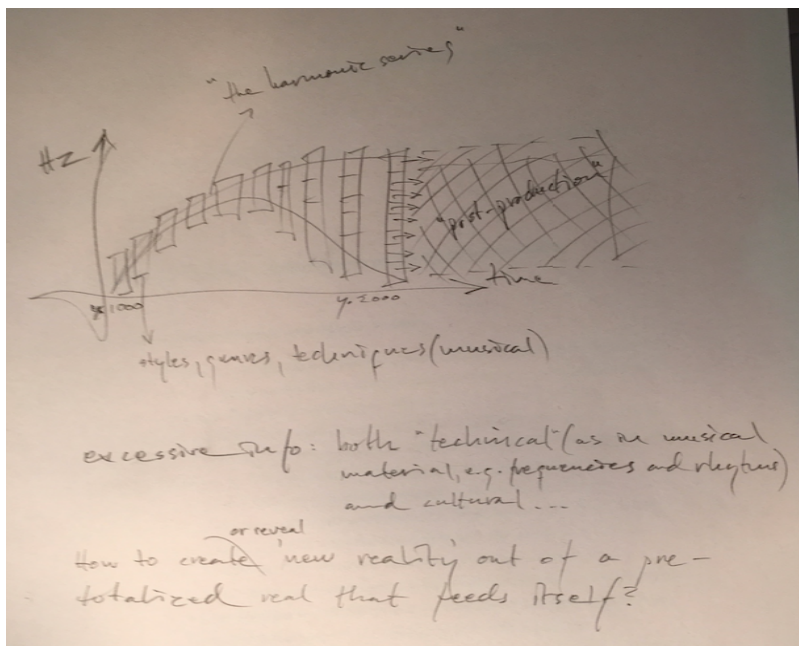 "the harmonic series"
Hz
"post-production"
time
y. 1000
y. 2000
styles, genres, techniques (musical)
excessive info: both "technical" (as in musical
material, e.g. frequencies and rhythms)
and cultural...
or reveal
How to create 'new reality' out of a pre-
totalized real that feeds itself?